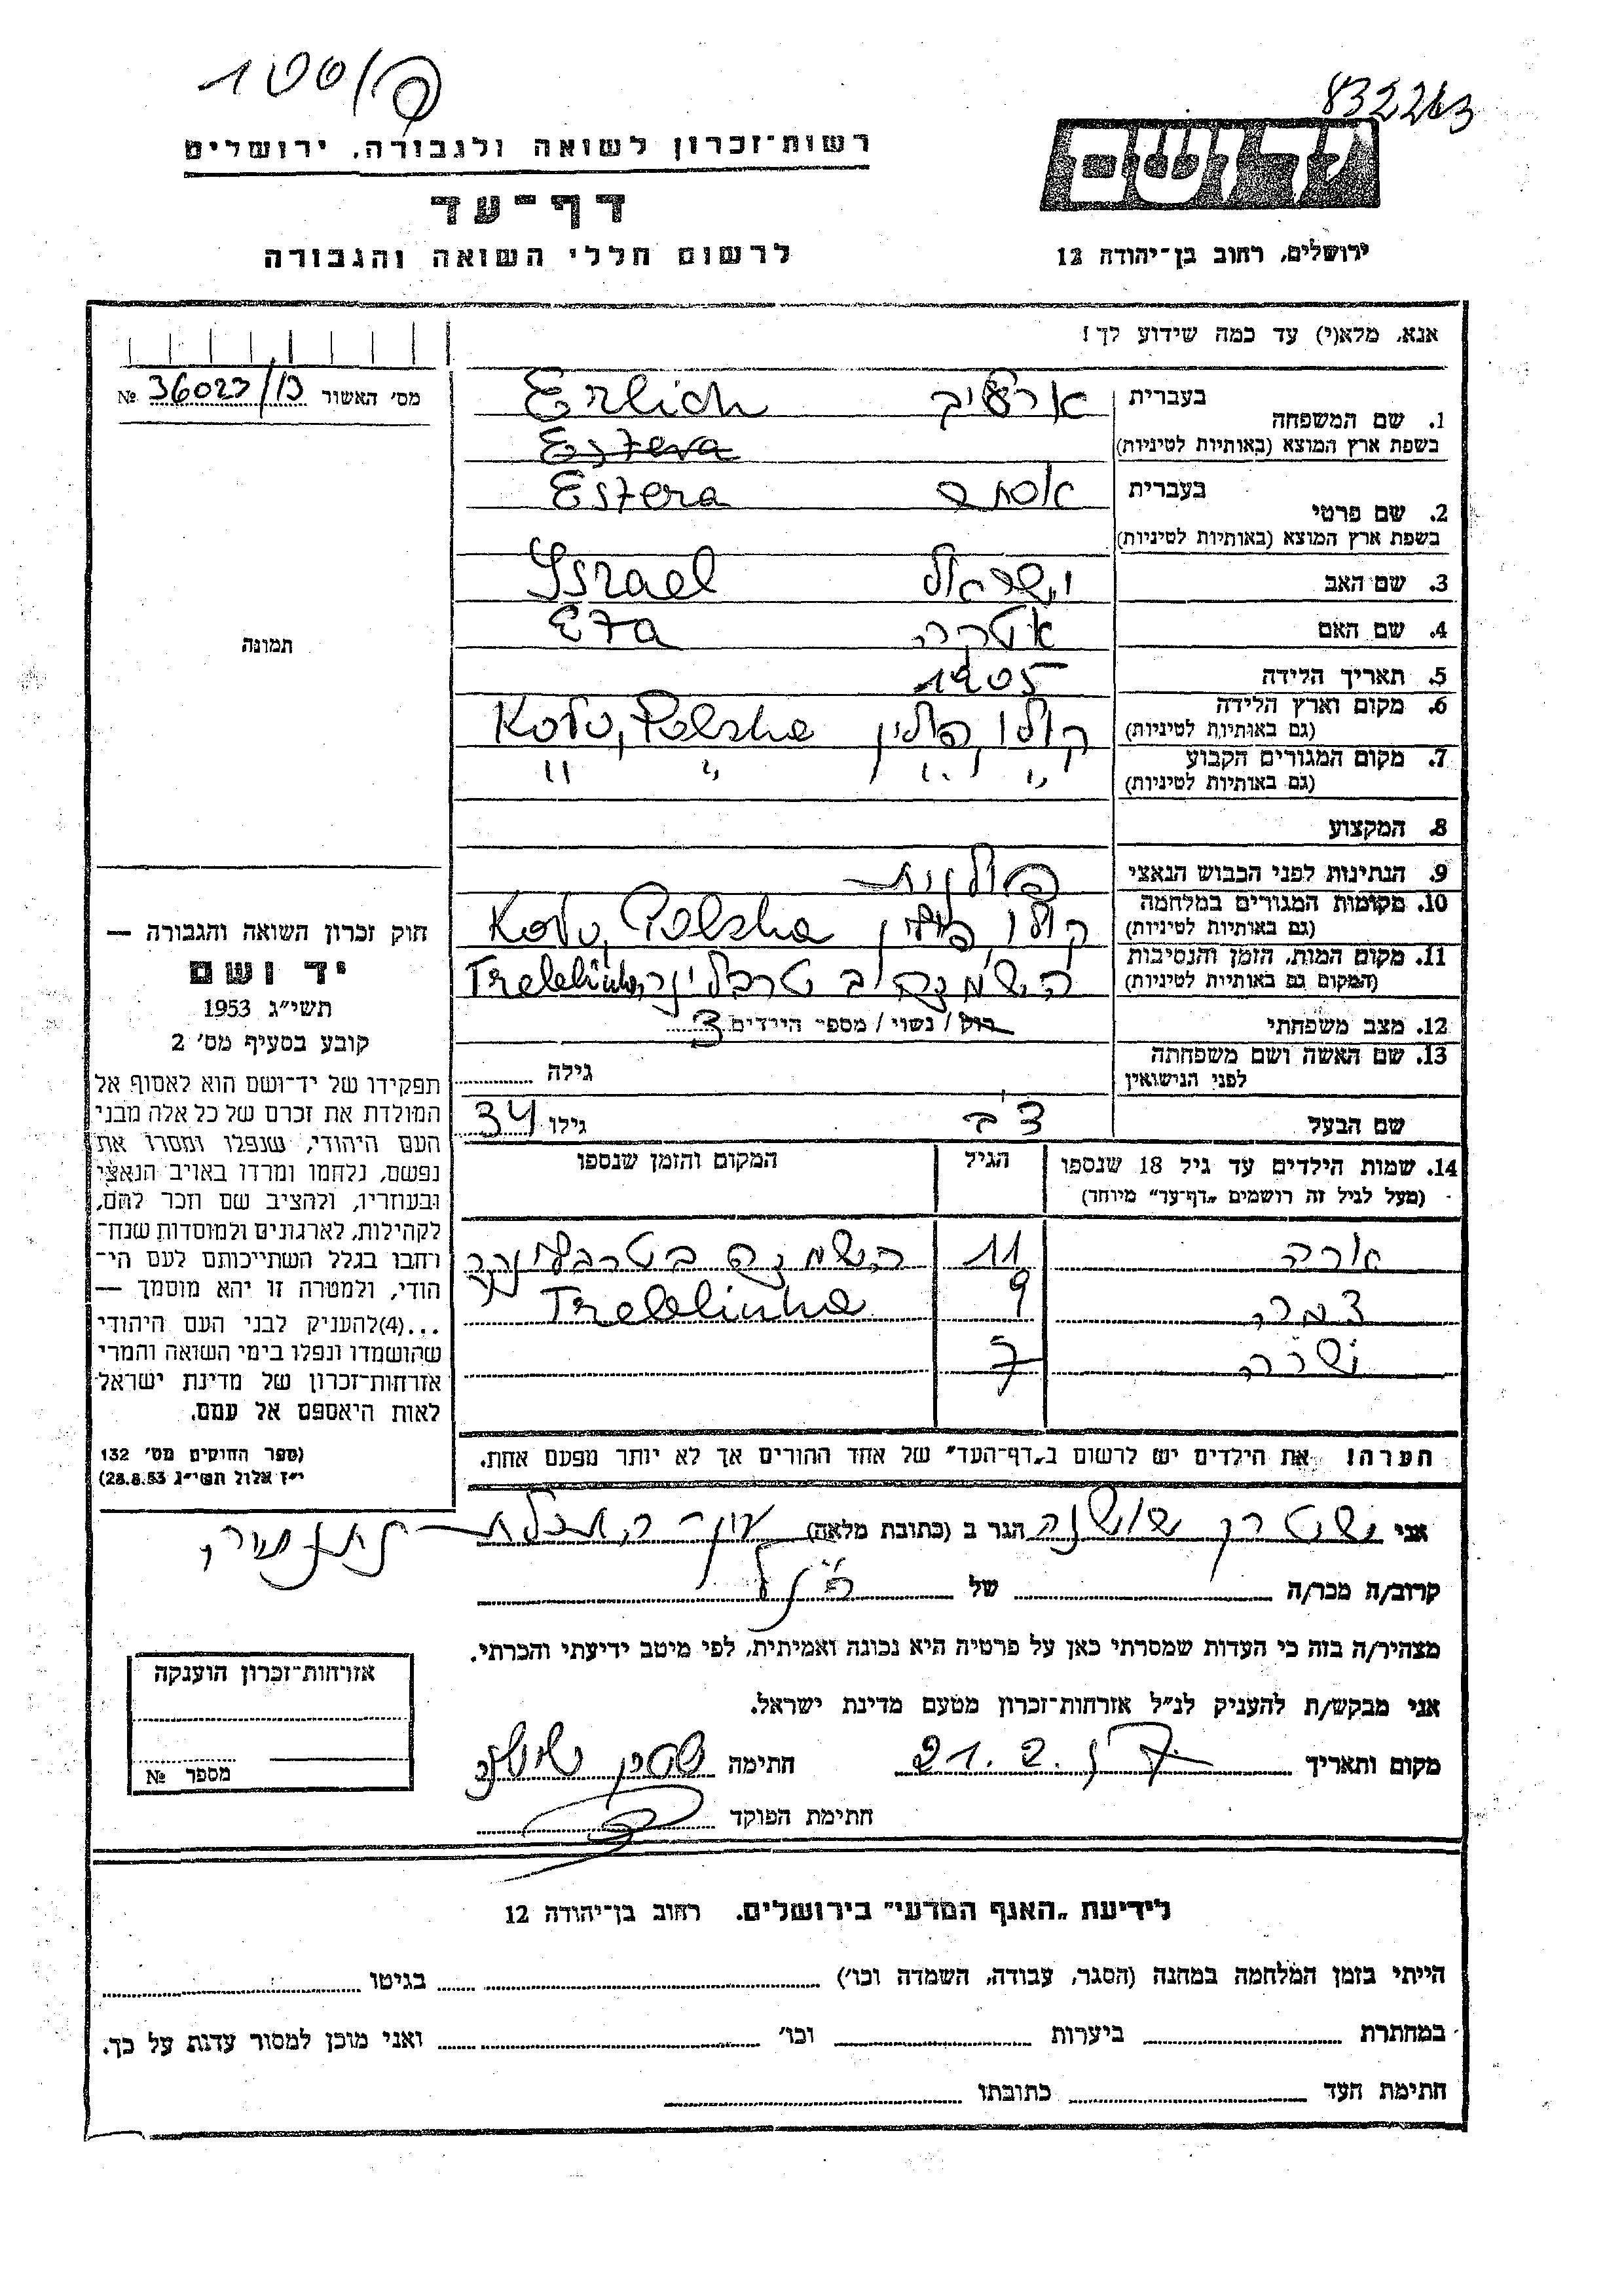 832263
רשות־זכרון לשואה ולגבורה, ירושלים
דף־עד
לרשום חללי השואה והגבורה
יד ושם
ירושלים, רחוב בן־יהודה 12
אנא, מלא(י) עד כמה שידוע לך!
מס׳ האשור № 36023/13
1. שם המשפחה בעברית ארליך Erlich
בשפת ארץ המוצא (באותיות לטיניות) Estera
2. שם פרטי בעברית אסתר Estera
בשפת ארץ המוצא (באותיות לטיניות)
3. שם האב ישראל Israel
4. שם האם Eta
תמונה
5. תאריך הלידה 1905
6. מקום וארץ הלידה קולו, פולין Koło, Polska
(גם באותיות לטיניות)
7. מקום המגורים הקבוע " " " "
(גם באותיות לטיניות)
8. המקצוע
9. הנתינות לפני הכבוש הנאצי פולנית
10. מקומות המגורים במלחמה קולו, פולין Koło, Polska
(גם באותיות לטיניות)
11. מקום המות, הזמן והנסיבות
(המקום גם באותיות לטיניות)
12. מצב משפחתי רוק / נשוי / מספר הילדים 3
13. שם האשה ושם משפחתה
לפני הנישואין גילה
שם הבעל גילו 34
14. שמות הילדים עד גיל 18 שנספו הגיל המקום והזמן שנספו
(מעל לגיל זה רושמים „דף־עד״ מיוחד)
11
9
שרה 7
הערה! את הילדים יש לרשום ב„דף־העד״ של אחד ההורים אך לא יותר מפעם אחת.
חוק זכרון השואה והגבורה —
יד ושם
תשי״ג 1953
קובע בסעיף מס׳ 2
תפקידו של יד־ושם הוא לאסוף אל
המולדת את זכרם של כל אלה מבני
העם היהודי, שנפלו ומסרו את
נפשם, נלחמו ומרדו באויב הנאצי
ובעוזריו, ולהציב שם וזכר להם,
לקהילות, לארגונים ולמוסדות שנח־
רחבו בגלל השתייכותם לעם הי־
הודי, ולמטרה זו יהא מוסמך —
...(4)להעניק לבני העם היהודי
שהושמדו ונפלו בימי השואה והמרי
אזרחות־זכרון של מדינת ישראל
לאות היאספם אל עמם.
(ספר החוקים מס׳ 132
י״ז אלול תשי״ג 28.8.53)
אני שושנה הגר ב (כתובת מלאה)
קרוב/ה מכר/ה של
מצהיר/ה בזה כי העדות שמסרתי כאן על פרטיה היא נכונה ואמיתית, לפי מיטב ידיעתי והכרתי.
אני מבקש/ת להעניק לנ״ל אזרחות־זכרון מטעם מדינת ישראל.
מקום ותאריך 21.2. חתימה
חתימת הפוקד
אזרחות־זכרון הוענקה
מספר №
לידיעת „האגף המדעי״ בירושלים. רחוב בן־יהודה 12
הייתי בזמן המלחמה במחנה (הסגר, עבודה, השמדה וכו׳) בגיטו
במחתרת ביערות וכו׳ ואני מוכן למסור עדות על כך.
חתימת העד כתובתו